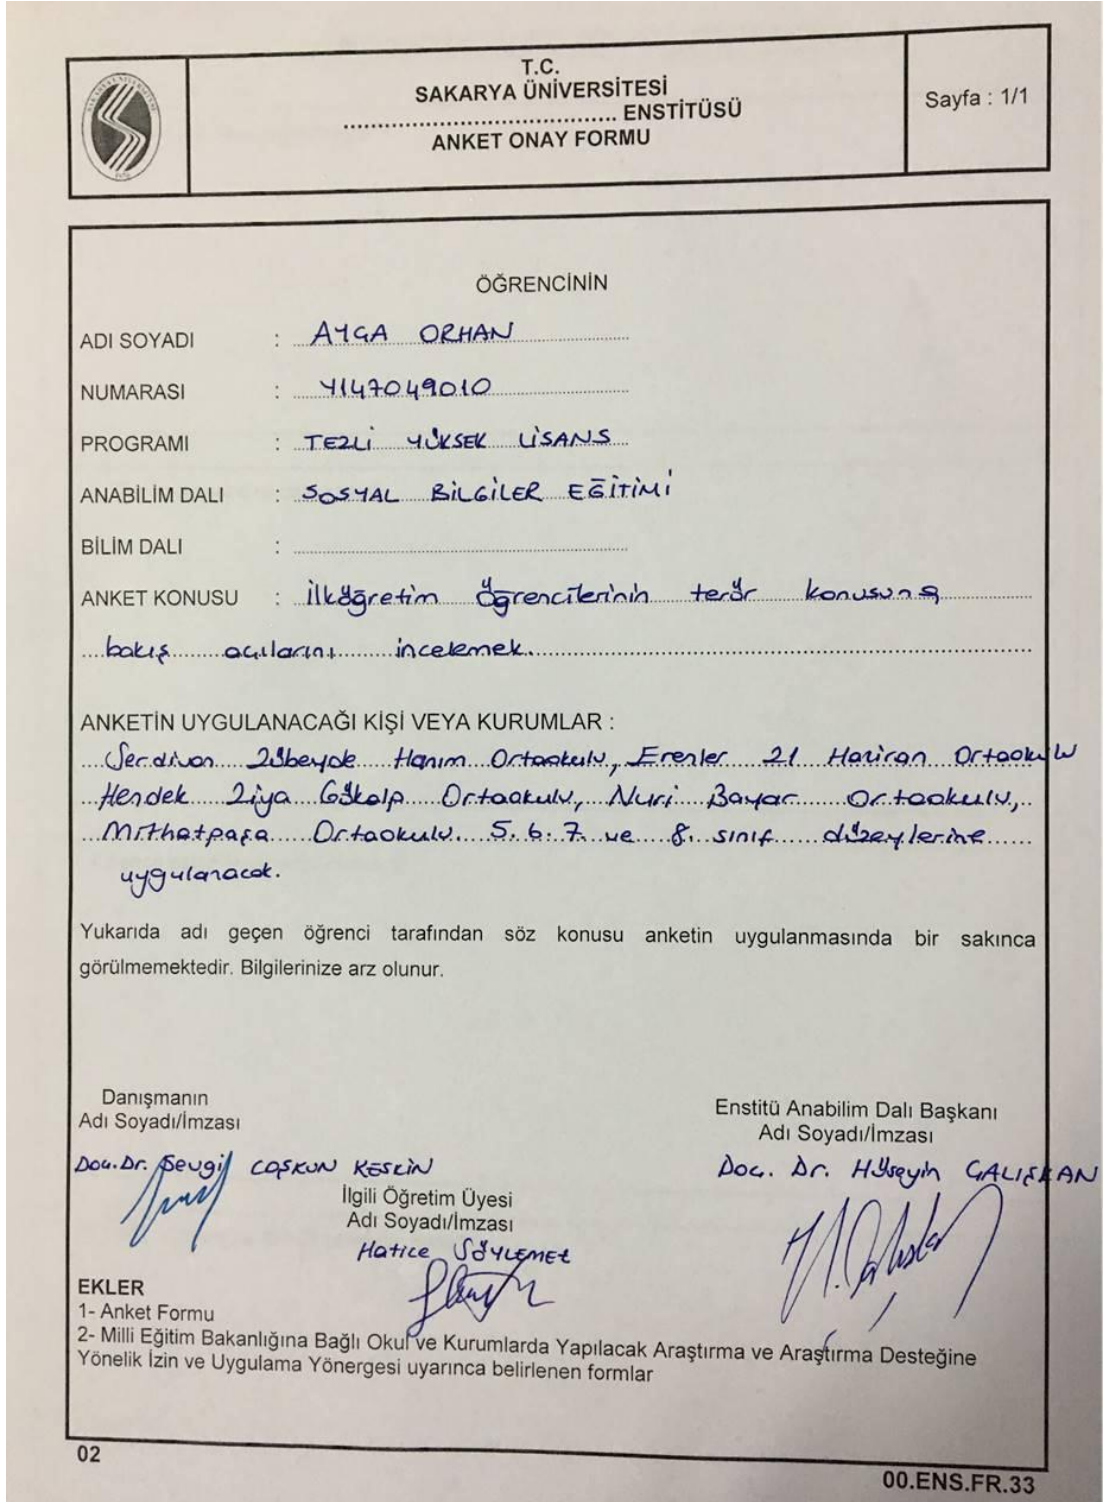 T.C.
SAKARYA ÜNİVERSİTESİ
........................................ ENSTİTÜSÜ
ANKET ONAY FORMU
Sayfa : 1/1
ÖĞRENCİNİN
ADI SOYADI : AYÇA ORHAN
NUMARASI : Y147049010
PROGRAMI : TEZLİ YÜKSEK LİSANS
ANABİLİM DALI : SOSYAL BİLGİLER EĞİTİMİ
BİLİM DALI :
ANKET KONUSU : İlköğretim öğrencilerinin terör konusuna
bakış açılarını incelemek.
ANKETİN UYGULANACAĞI KİŞİ VEYA KURUMLAR :
Serdivan Zübeyde Hanım Ortaokulu, Erenler 21 Haziran Ortaokulu
Hendek Ziya Gökalp Ortaokulu, Nuri Bayar Ortaokulu,
Mithatpaşa Ortaokulu 5. 6. 7. ve 8. sınıf düzeylerine
uygulanacak.
Yukarıda adı geçen öğrenci tarafından söz konusu anketin uygulanmasında bir sakınca
görülmemektedir. Bilgilerinize arz olunur.
Danışmanın
Adı Soyadı/İmzası
Doç.Dr. Sevgi COŞKUN KESKİN
İlgili Öğretim Üyesi
Adı Soyadı/İmzası
Hatice SÖYLEMEZ
Enstitü Anabilim Dalı Başkanı
Adı Soyadı/İmzası
Doç. Dr. Hüseyin ÇALIŞKAN
EKLER
1- Anket Formu
2- Milli Eğitim Bakanlığına Bağlı Okul ve Kurumlarda Yapılacak Araştırma ve Araştırma Desteğine
Yönelik İzin ve Uygulama Yönergesi uyarınca belirlenen formlar
02
00.ENS.FR.33